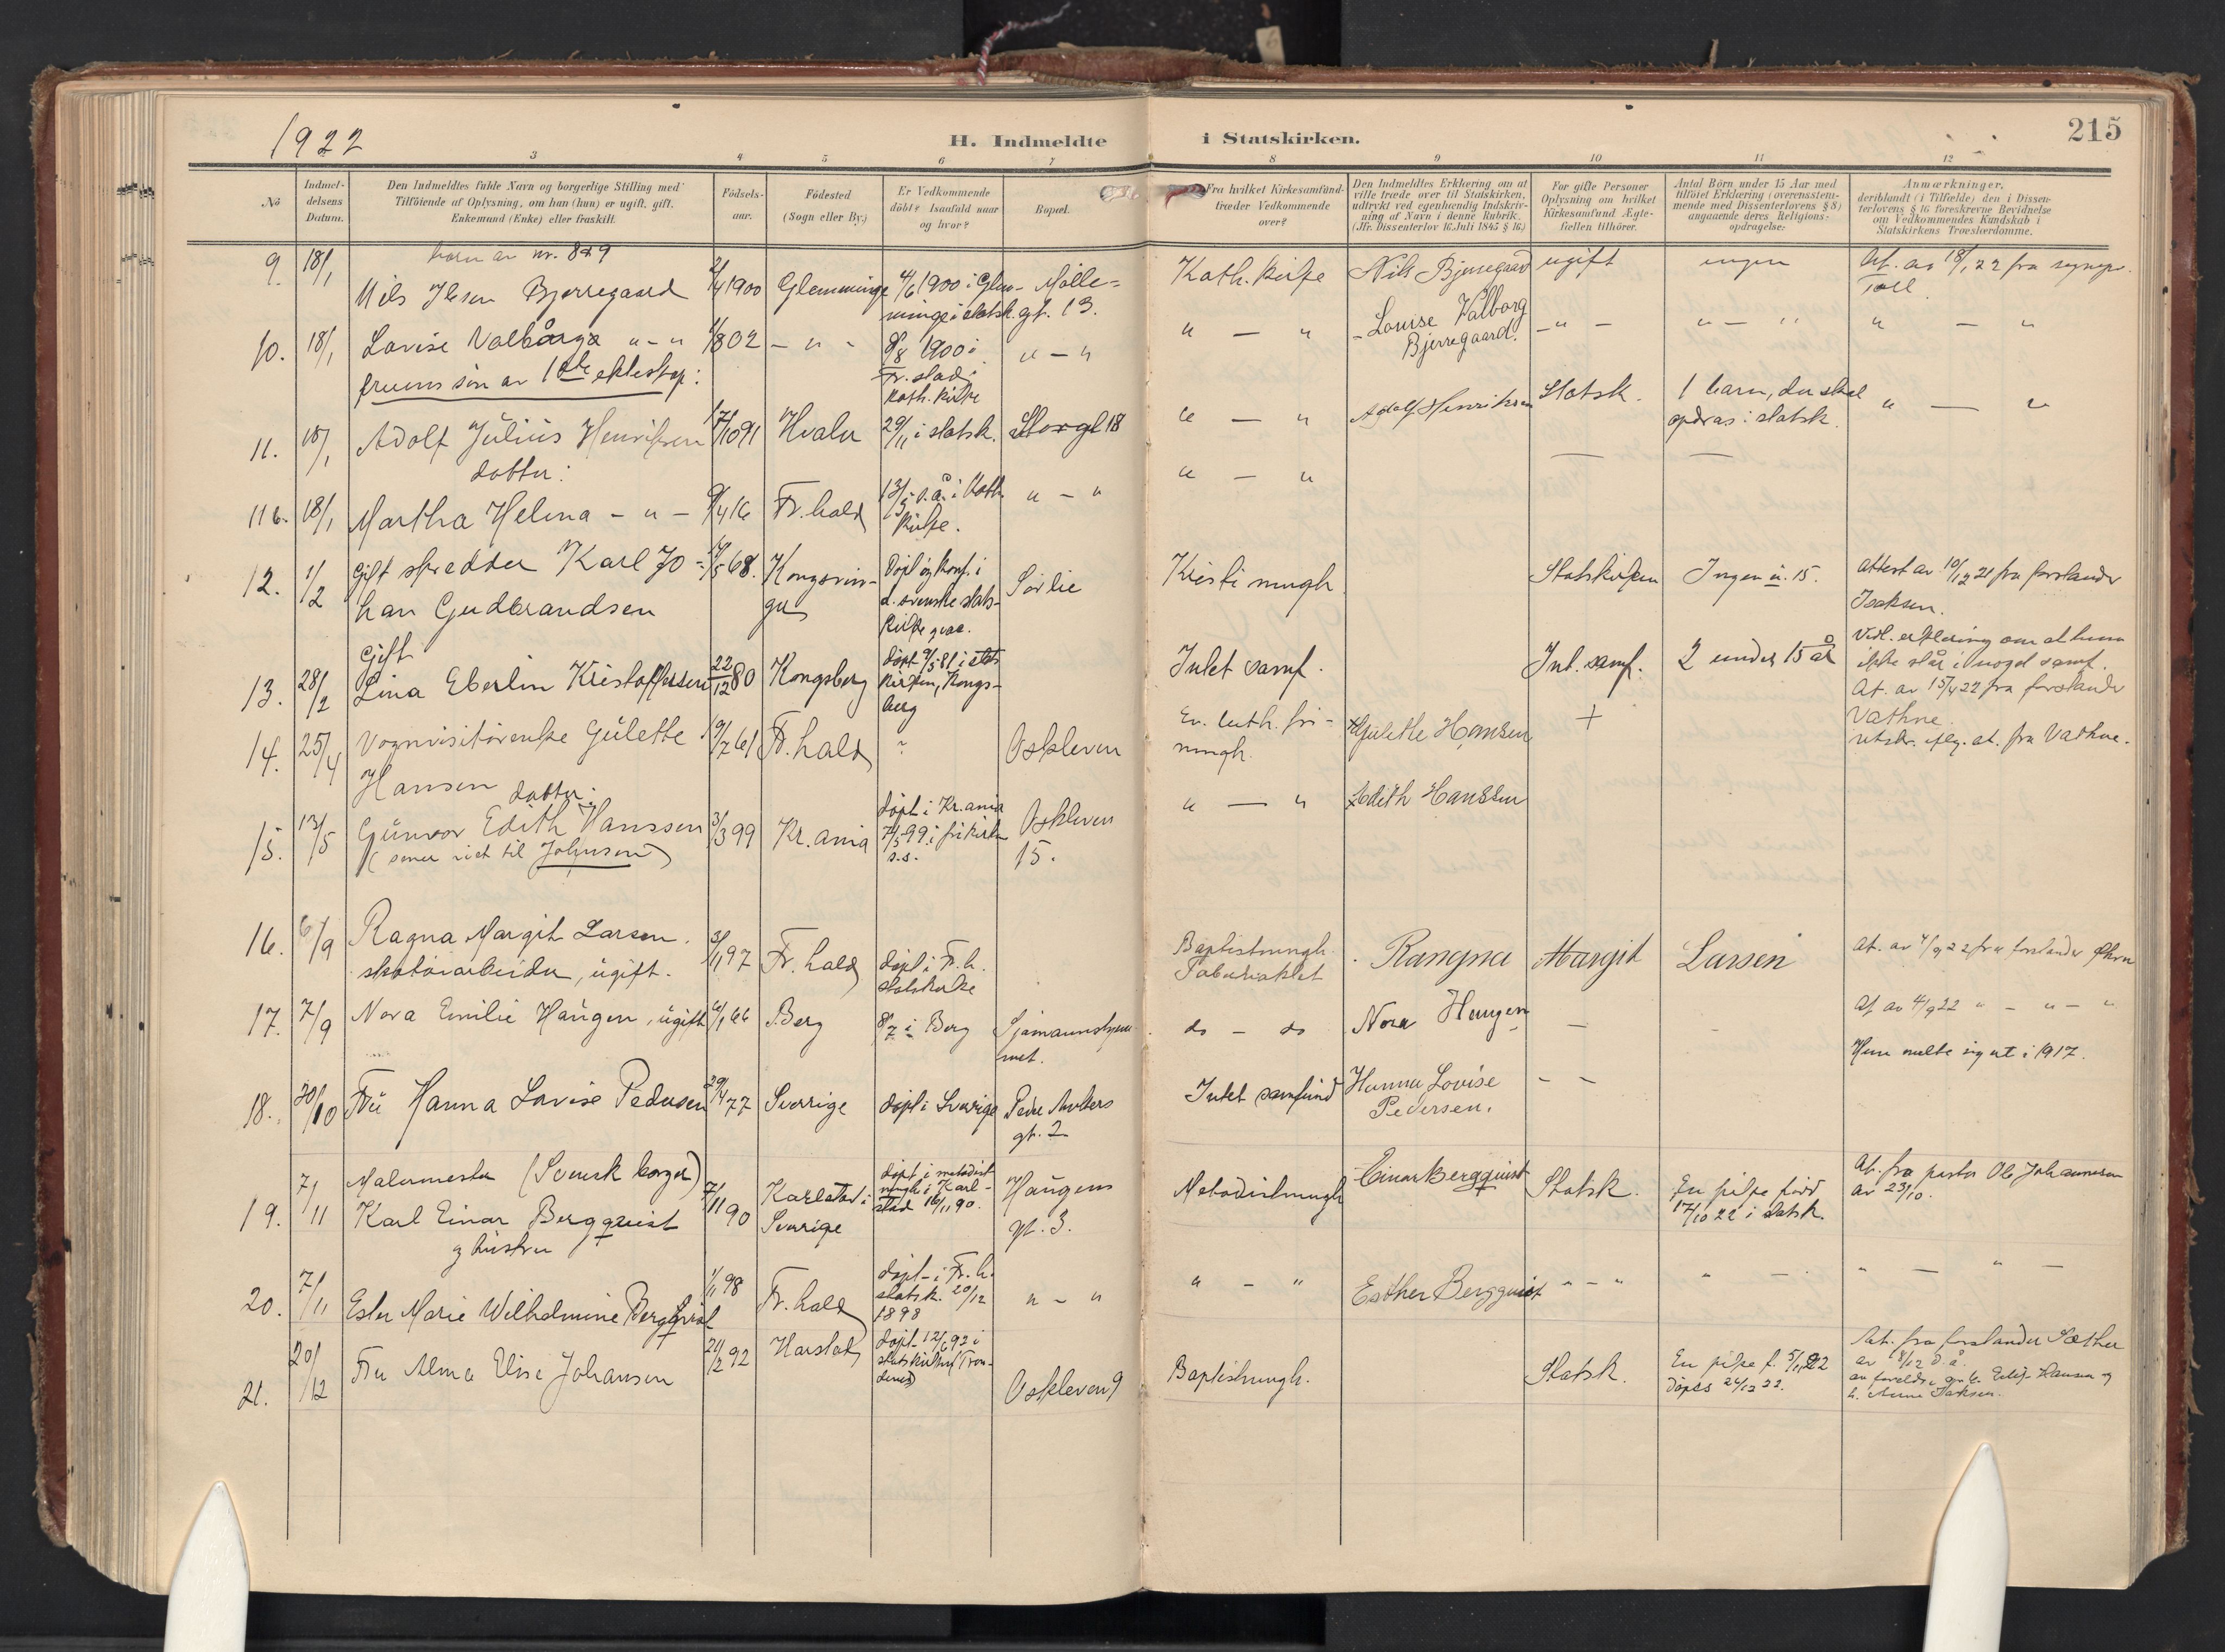 1922
H. Indmeldte i Statskirken.
215
3 4 5 6 7 8 9 10 11 12
No
Indmel-
delsens
Datum.
Den Indmeldtes fulde Navn og borgerlige Stilling med
Tilföiende af Oplysning, om han (hun) er ugift, gift,
Enkemand (Enke) eller fraskilt.
Födsels-
aar.
Födested
(Sogn eller By.)
Er Vedkommende
döbt? Isaafald naar
og hvor?
Bopæl.
Fra hvilket Kirkesamfund
træder Vedkommende
over?
Den Indmeldtes Erklæring om at
ville træde over til Statskirken,
udtrykt ved egenhændig Indskriv-
ning af Navn i denne Rubrik.
(Jfr. Dissenterlov 16 Juli 1845 § 16.)
For gifte Personer
Oplysning om hvilket
Kirkesamfund Ægte-
fællen tilhörer.
Antal Börn under 15 Aar med
tilföiet Erklæring (overensstem-
mende med Dissenterlovens § 8)
angaaende deres Religions-
opdragelse:
Anmærkninger,
deriblandt (i Tilfælde) den i Dissen-
terlovens § 16 foreskrevne Bevidnelse
om Vedkommendes Kundskab i
Statskirkens Troeslærdomme.
barn av nr. 8 & 9
9. 18/1 Nils Ibsen Bjerregaard 1900 Glemminge 4/6 1900 i Glem- Mölle-
minge i statsk. gt. 13.
Kath. kirke Nils Bjerregaard ugift ingen At. av 18/1 22 fra
10. 18/1 Lovise Valborg " - " 1/8 02 - " - 9/8 1900 i " - "
Fr.stad i
Kath. kirke
" - " Louise Valborg - " - " - " " - "
Bjerregaard.
fruens sön av 1ste ekteskap:
11. 18/1 Adolf Julius Henriksen 17/10 91 Hvaler 29/11 i statsk. Storgt 18
" - " Adolf Henriksen Statsk. 1 barn, der skal " - "
opdras i statsk.
datter:
11 b. 18/1 Martha Helena - " - 9/4 16 Fr.hald 13/5 s.å. i Kath. " - "
kirke.
" - " — —
12. 1/2 Gift skredder Karl Jo- 68. Kongsvin- Döpt og konf. i Sörlie
han Gudbrandsen ger d. svenske stats-
kirke
Kristi mengh. Statskirken Ingen u. 15. Attest av 10/12 21 fra forstander
Isaksen.
Gift
13. 28/2 Lina Eberlin Kristoffersen 22/12 80 Kongsberg döpt 4/5 81 i stats
kirken, Kongs-
berg
Intet samf. Int. samf. 2 under 15 år Vedl. erklæring om at hun
ikke står i noget samf.
14. 25/4 Vognvisitörenke Gulette 19/7 61 Fr.hald ? Oskleven
Hansen
Ev. luth. fri- Gulette Hansen + At. av 15/4 22 fra forstander
mengh. Vathne.
datter:
15. 13/5 Gunvor Edith Hanssen 3/3 99 Kr.ania döpt i Kr.ania Oskleven
7/5 99 i frikirken 15.
s.s.
" - " Edith Hanssen utskr. iflg. at. fra Vathne.
(senere viet til Johnsen)
16. 6/9 Ragna Margit Larsen. 3/11 97 Fr.hald döpt i Fr.h.
skotöiarbeider, ugift. statskirke
Baptistmengh. Rangna Margit Larsen At. av 4/9 22 fra forstander Öhrn
Tabernaklet
17. 7/9 Nora Emilie Haugen, ugift 6/1 66 Berg 8/7 i Berg Sjömannshjem-
met.
do - do Nora Haugen — - At av 4/9 22 " - " - "
18. 30/10 Fru Hanna Lovise Pedersen 29/4 77 Sverrige döpt i Sverige Peder Ankers
gt. 2
Intet samfund Hanna Lovise - - Hun meldte sig ut i 1917.
Pedersen.
19. 7/11 Malermester (Svensk borger) 7/11 90 Karlstad i döpt i metodist Haugens
Karl Einar Bergquist Sverige mengh. i Karl- gt. 3.
stad 16/11 90.
Metodistmengh. Einar Bergquist Statsk. En pike född At. fra pastor Ole Johannesen
17/10 22 i statsk. av 23/10.
og hustru
20. 7/11 Ester Marie Wilhelmine Bergquist 1/11 98 Fr.hald döpt i Fr.h. " - "
statsk. 20/12
1898
" - " Esther Bergquist " - " " - " - " -
21. 20/12 Fru Alma Elise Johansen 24/2 92 Harstad döpt 12/6 92 i Oskleven 9
statskirken (Tron-
denes)
Baptistmengh. Statsk. En pike f. 5/11 22 At. fra forstander Sæther
döpes 24/12 22. av 18/12 d.å.